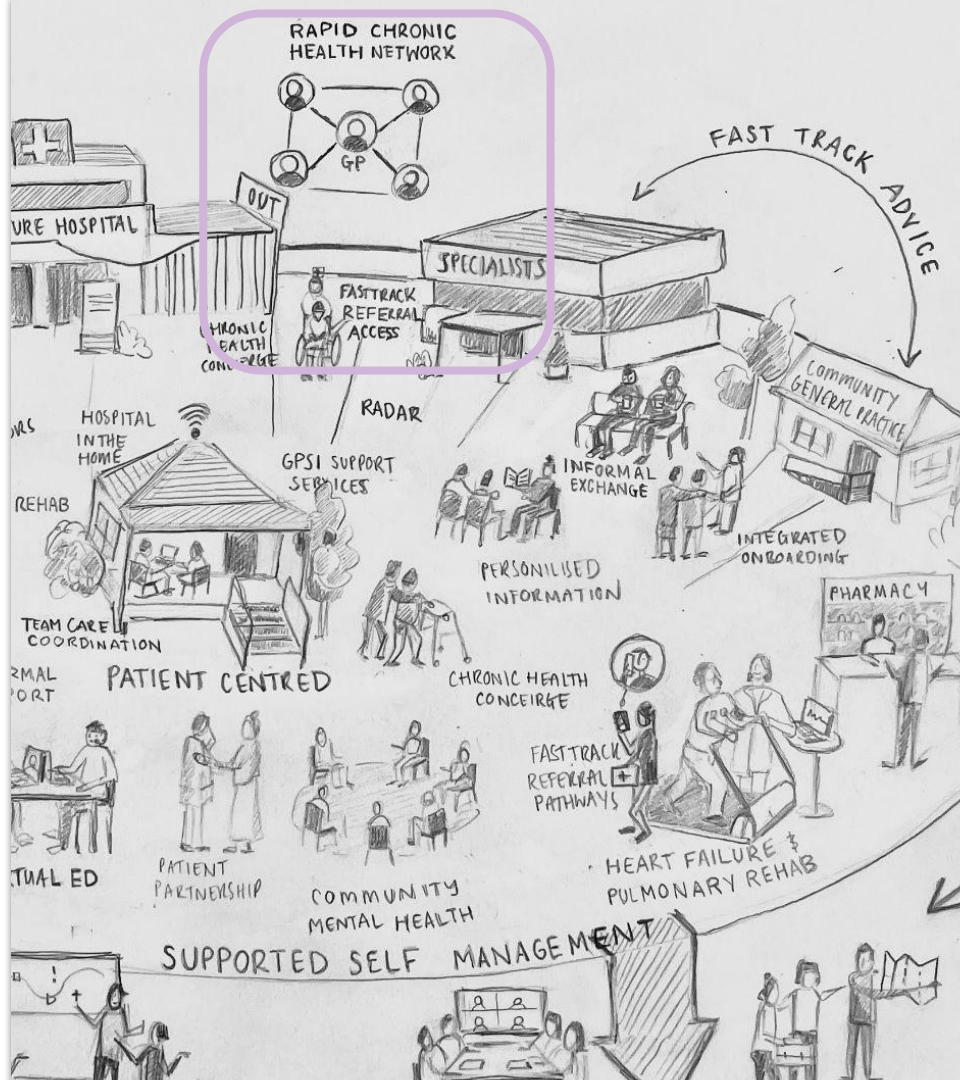 RAPID CHRONIC
HEALTH NETWORK
GP
OUT
URE HOSPITAL
SPECIALISTS
FAST TRACK ADVICE
FASTTRACK
REFERRAL
ACCESS
CHRONIC
HEALTH
CONCIERGE
RADAR
COMMUNITY
GENERAL PRACTICE
ORS
HOSPITAL
IN THE
HOME
GPSI SUPPORT
SERVICES
INFORMAL
EXCHANGE
REHAB
INTEGRATED
ONBOARDING
PERSONILISED
INFORMATION
PHARMACY
TEAM CARE
COORDINATION
RMAL
PORT
PATIENT CENTRED
CHRONIC HEALTH
CONCEIRGE
FAST TRACK
REFERRAL
PATHWAYS
TUAL ED
PATIENT
PARTNERSHIP
COMMUNITY
MENTAL HEALTH
HEART FAILURE &
PULMONARY REHAB
SUPPORTED SELF MANAGEMENT